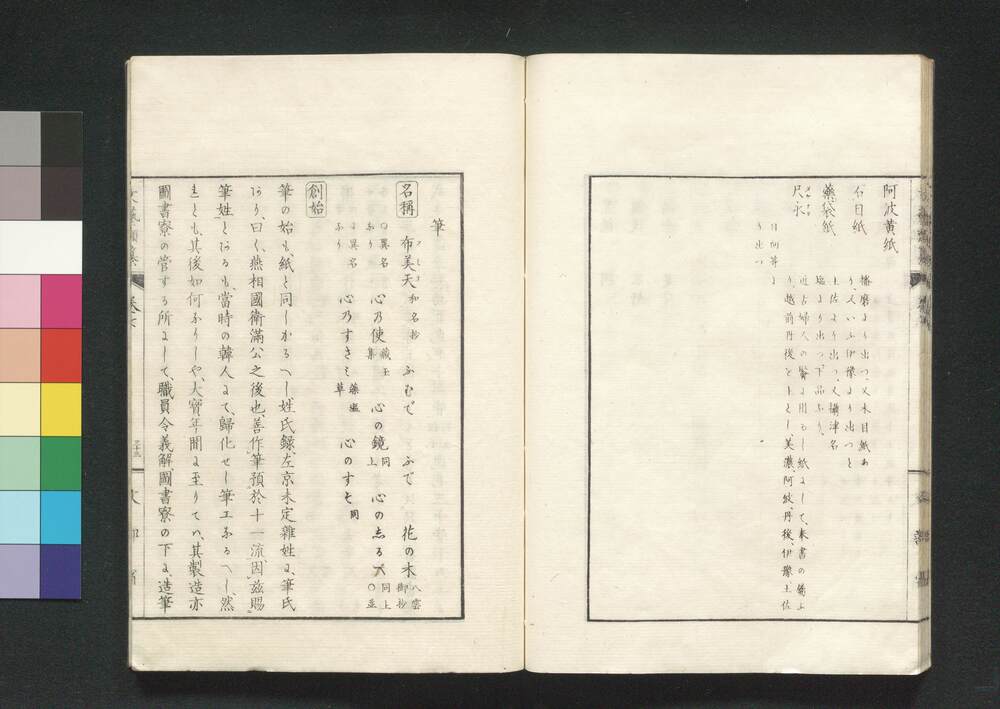 阿波黄紙
石目紙 播磨より出つ、又木目紙あ
り、又いふ伊豫より出つと
藥袋紙 土佐より出つ、又攝津名
塩より出つ、下品なり、
尺永 近古婦人の髻に用るし紙にして、奉書の薦ふ
り、越前丹後を上とし、美濃、阿波、丹後、伊豫、土佐
日向等よ
り出つ
筆
名稱 布美天 和名抄 ふむで ふで 花の木 八雲御抄
○異名なり 心乃使 藏玉集 心の鏡 同上 心のしるへ 同上 ○並
に異名なり 心乃すさミ 藻塩草 心のすゑ 同
創始
筆の始も、紙と同しかるへし、姓氏録、左京未定雜姓に、筆氏
あり、曰く、燕相國衛滿公之後也、善作筆預於十一流、因茲賜
筆姓とあるも、當時の韓人にて、歸化せし筆工なるへし、然
れとも、其後如何なりしや、大寶年間に至りてハ、其製造亦
圖書寮の管する所にして、職員令義解圖書寮の下に、造筆
卷七